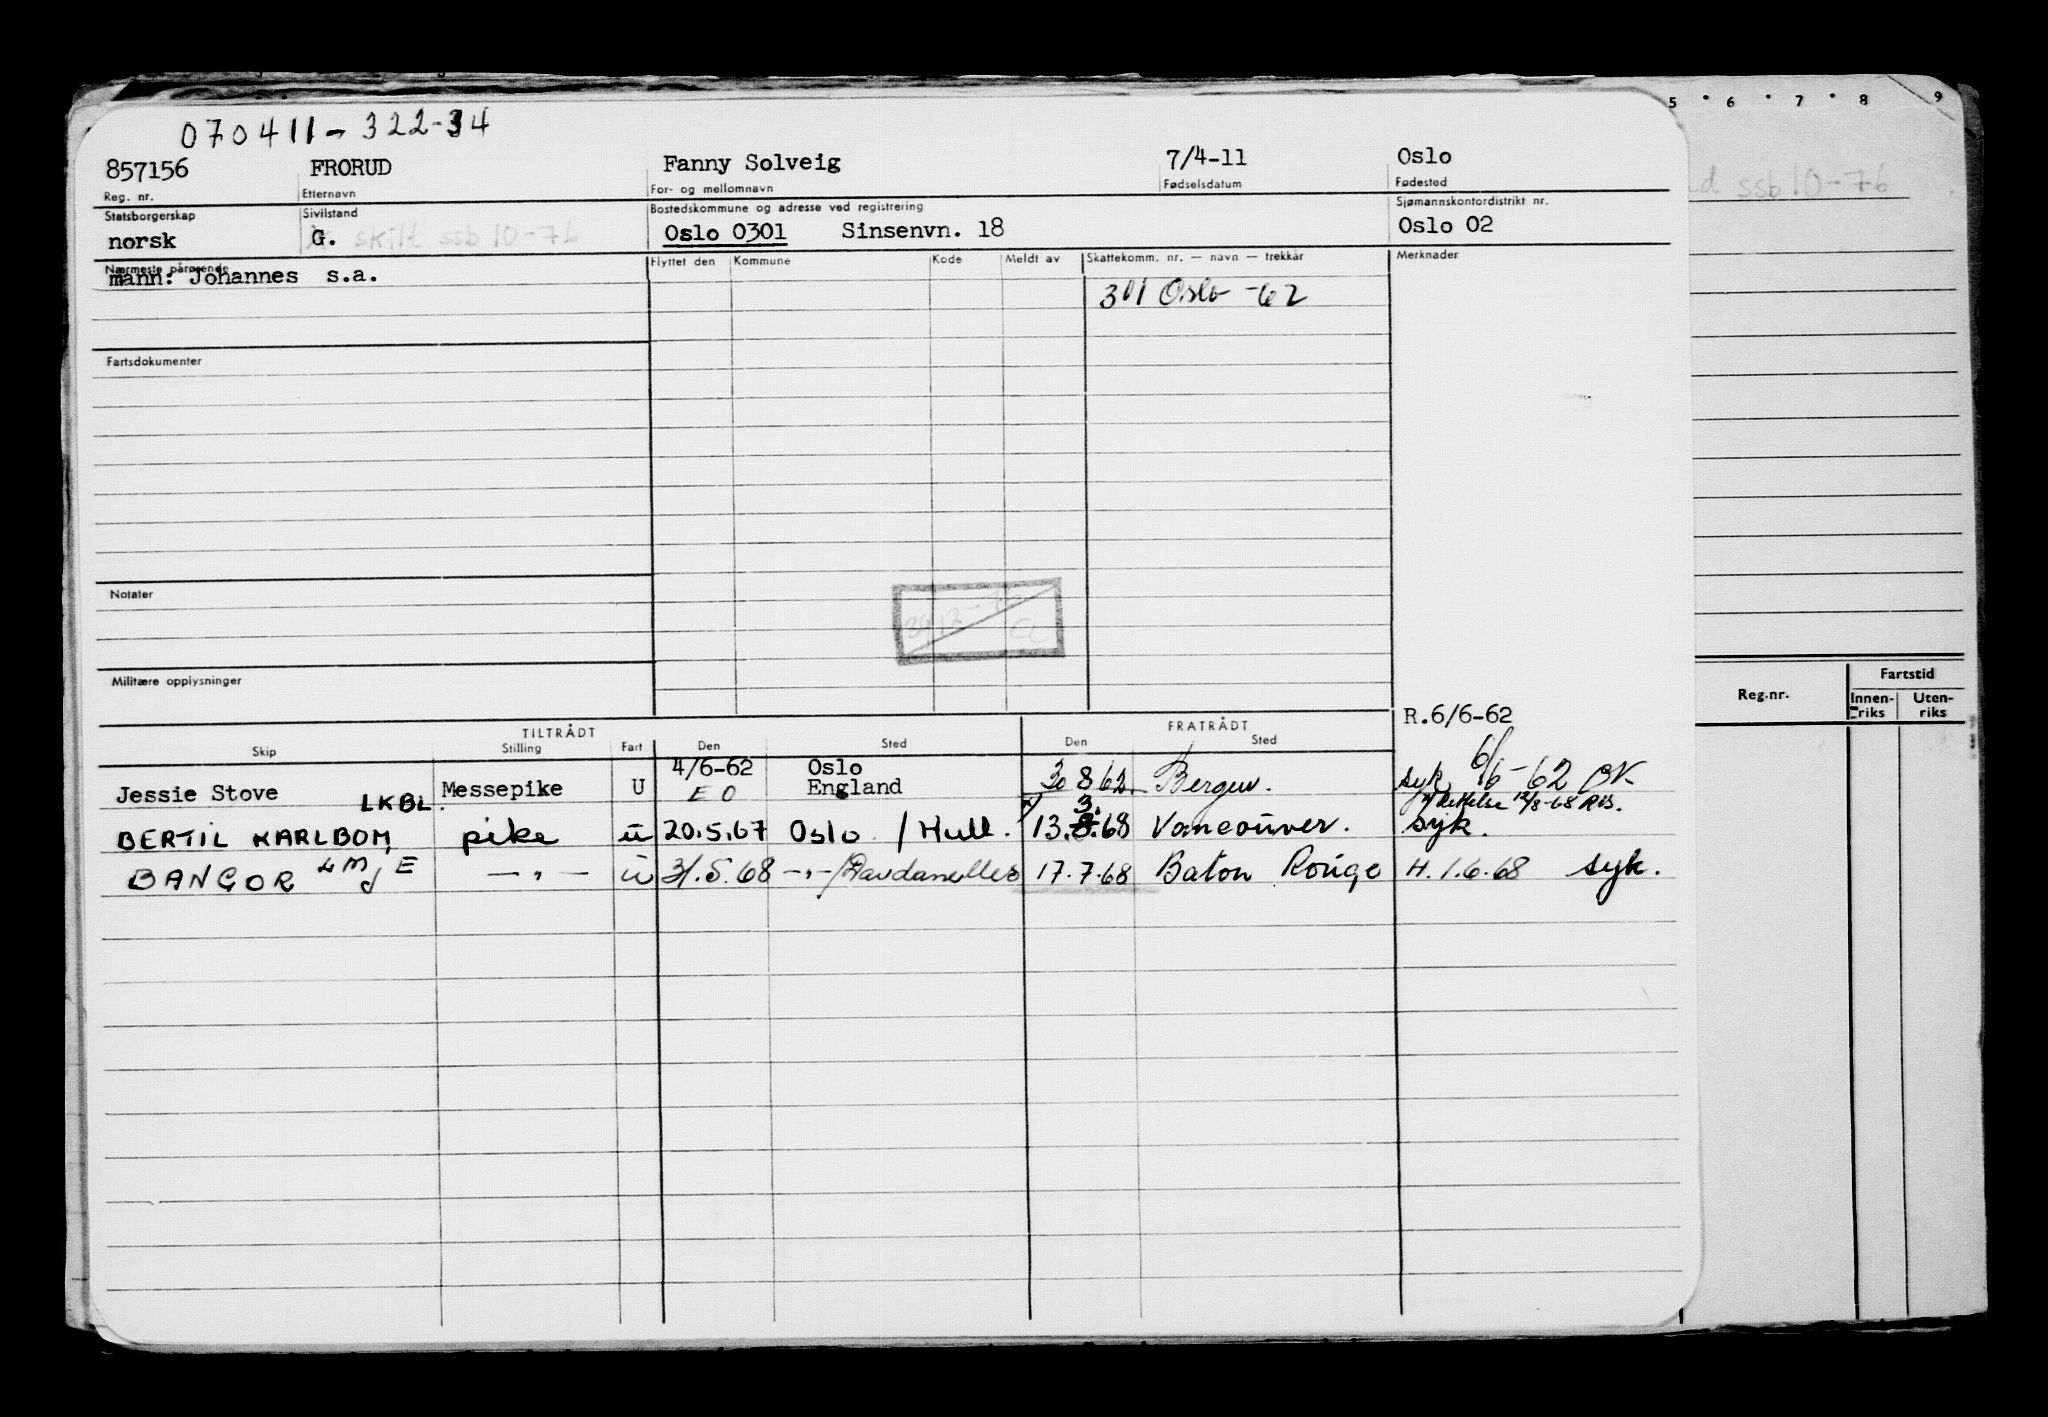 070411-322-34
5 • 6 • 7 • 8 9
857156 FRORUD Fanny Solveig 7/4-11 Oslo
Reg. nr. Etternavn For- og mellomnavn Fødselsdatum Fødested
ssb 10-76
Statsborgerskap Sivilstand Bostedskommune og adresse ved registrering Sjømannskontordistrikt nr.
norsk G. skilt ssb 10-76 Oslo 0301 Sinsenvn. 18 Oslo 02
Nærmeste pårørende Flyttet den Kommune Kode Meldt av Skattekomm. nr. — navn — trekkår Merknader
mann: Johannes s.a.
301 Oslo -62
Fartsdokumenter
Notater
Militære opplysninger
Reg.nr. Fartstid
Innen-riks Uten-riks
R.6/6-62
TILTRÅDT FRATRÅDT
Skip Stilling Fart Den Sted Den Sted
4/6-62 Oslo
Jessie Stove Messepike U E O England 30 8 62 Bergen. syk 6/6-62
LKBL. 3. Rettelse 12/8-68
BERTIL KARLBOM pike u 20.5.67 Oslo / Hull. 13.8.68 Vancouver. syk.
BANGOR LMJE —„— u 31.5.68 -„-/Dardanelles 17.7.68 Baton Rouge H. 1.6.68 syk.